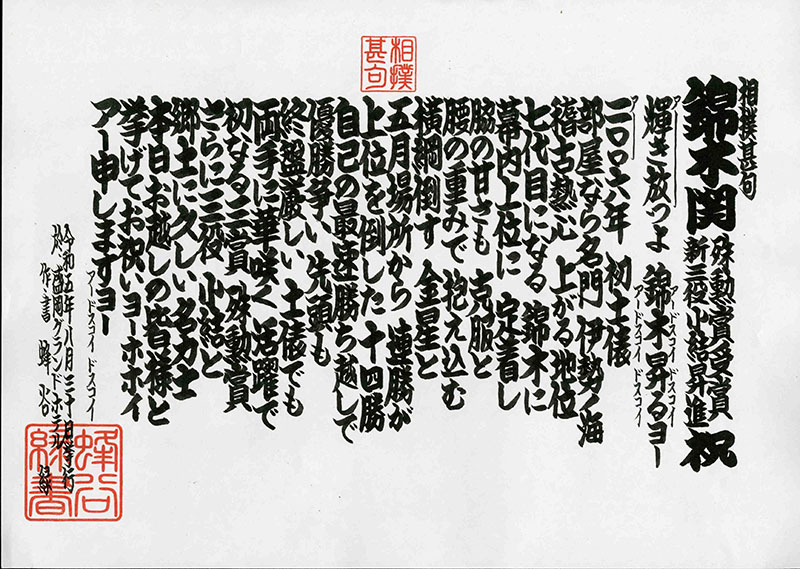 相撲甚句
相撲甚句
錦木関 殊勲賞受賞 新三役小結昇進 祝
アー
輝き放つよ 錦木昇るヨー
アードスコイ ドスコイ
アー
二〇〇六年 初土俵
アードスコイ ドスコイ
部屋なら名門 伊勢ノ海
稽古熱心 上がる地位
七代目になる 錦木に
幕内上位に 定着し
脇の甘さも 克服と
腰の重みで 抱え込む
横綱倒す 金星と
五月場所から 連勝が
上位を倒した 十四勝
自己の最速勝ち越しで
優勝争い 先頭も
終盤厳しい 土俵でも
両手に華咲く 活躍で
初なる三賞 殊勲賞
さらに三役 小結と
郷土に久しい 名力士
本日お越しの皆様と
挙げてお祝いヨーホホイ
アー申しますヨー
アードスコイ ドスコイ
令和五年八月三十日挙行
於 盛岡グランドホテル
作・書 蜂谷 縁
蜂谷
縁書